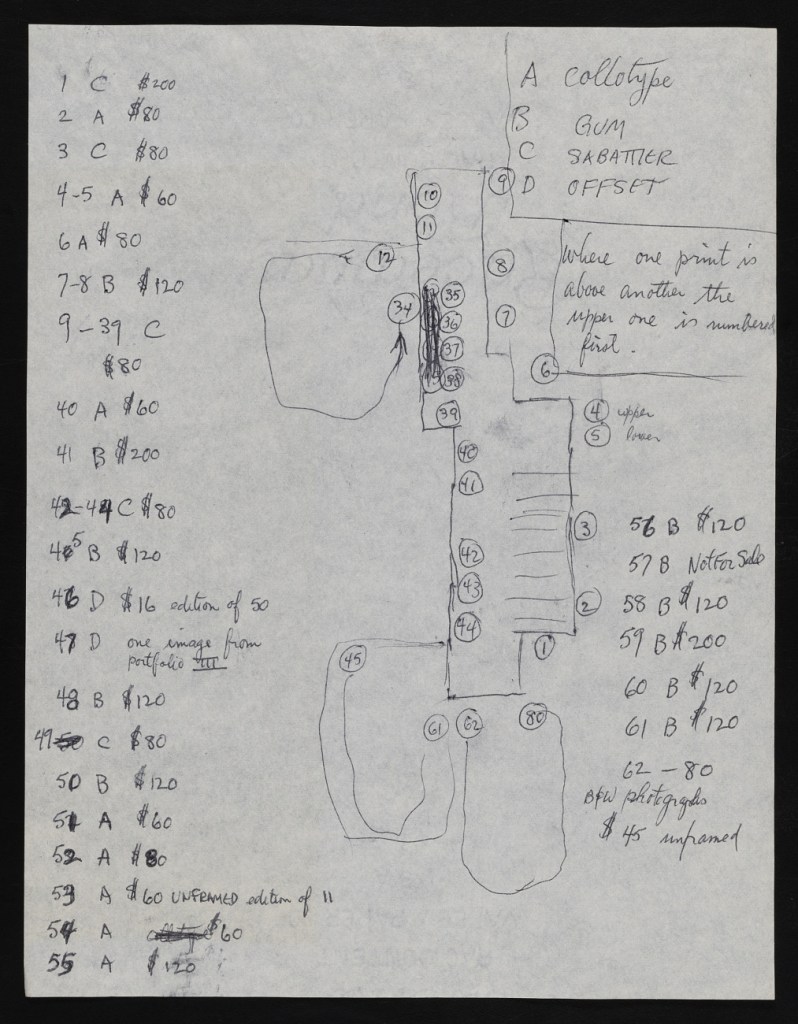 1 C $200
2 A $80
3 C $80
4-5 A $60
6 A $80
7-8 B $120
9-39 C
$80
40 A $60
41 B $200
42-44 C $80
45 B $120
46 D $16 edition of 50
47 D one image from
portfolio III
48 B $120
49 C $80
50 B $120
51 A $60
52 A $80
53 A $60 UNFRAMED edition of 11
54 A $60
55 A $120
A collotype
B GUM
C SABATTIER
D OFFSET
Where one print is
above another the
upper one is numbered
first.
9
10
11
8
12
35
34
7
36
37
38
6
39
4 upper
5 lower
40
41
3
42
43
2
44
1
45
61 62 80
56 B $120
57 B Not For Sale
58 B $120
59 B $200
60 B $120
61 B $120
62-80
B&W photographs
$45 unframed